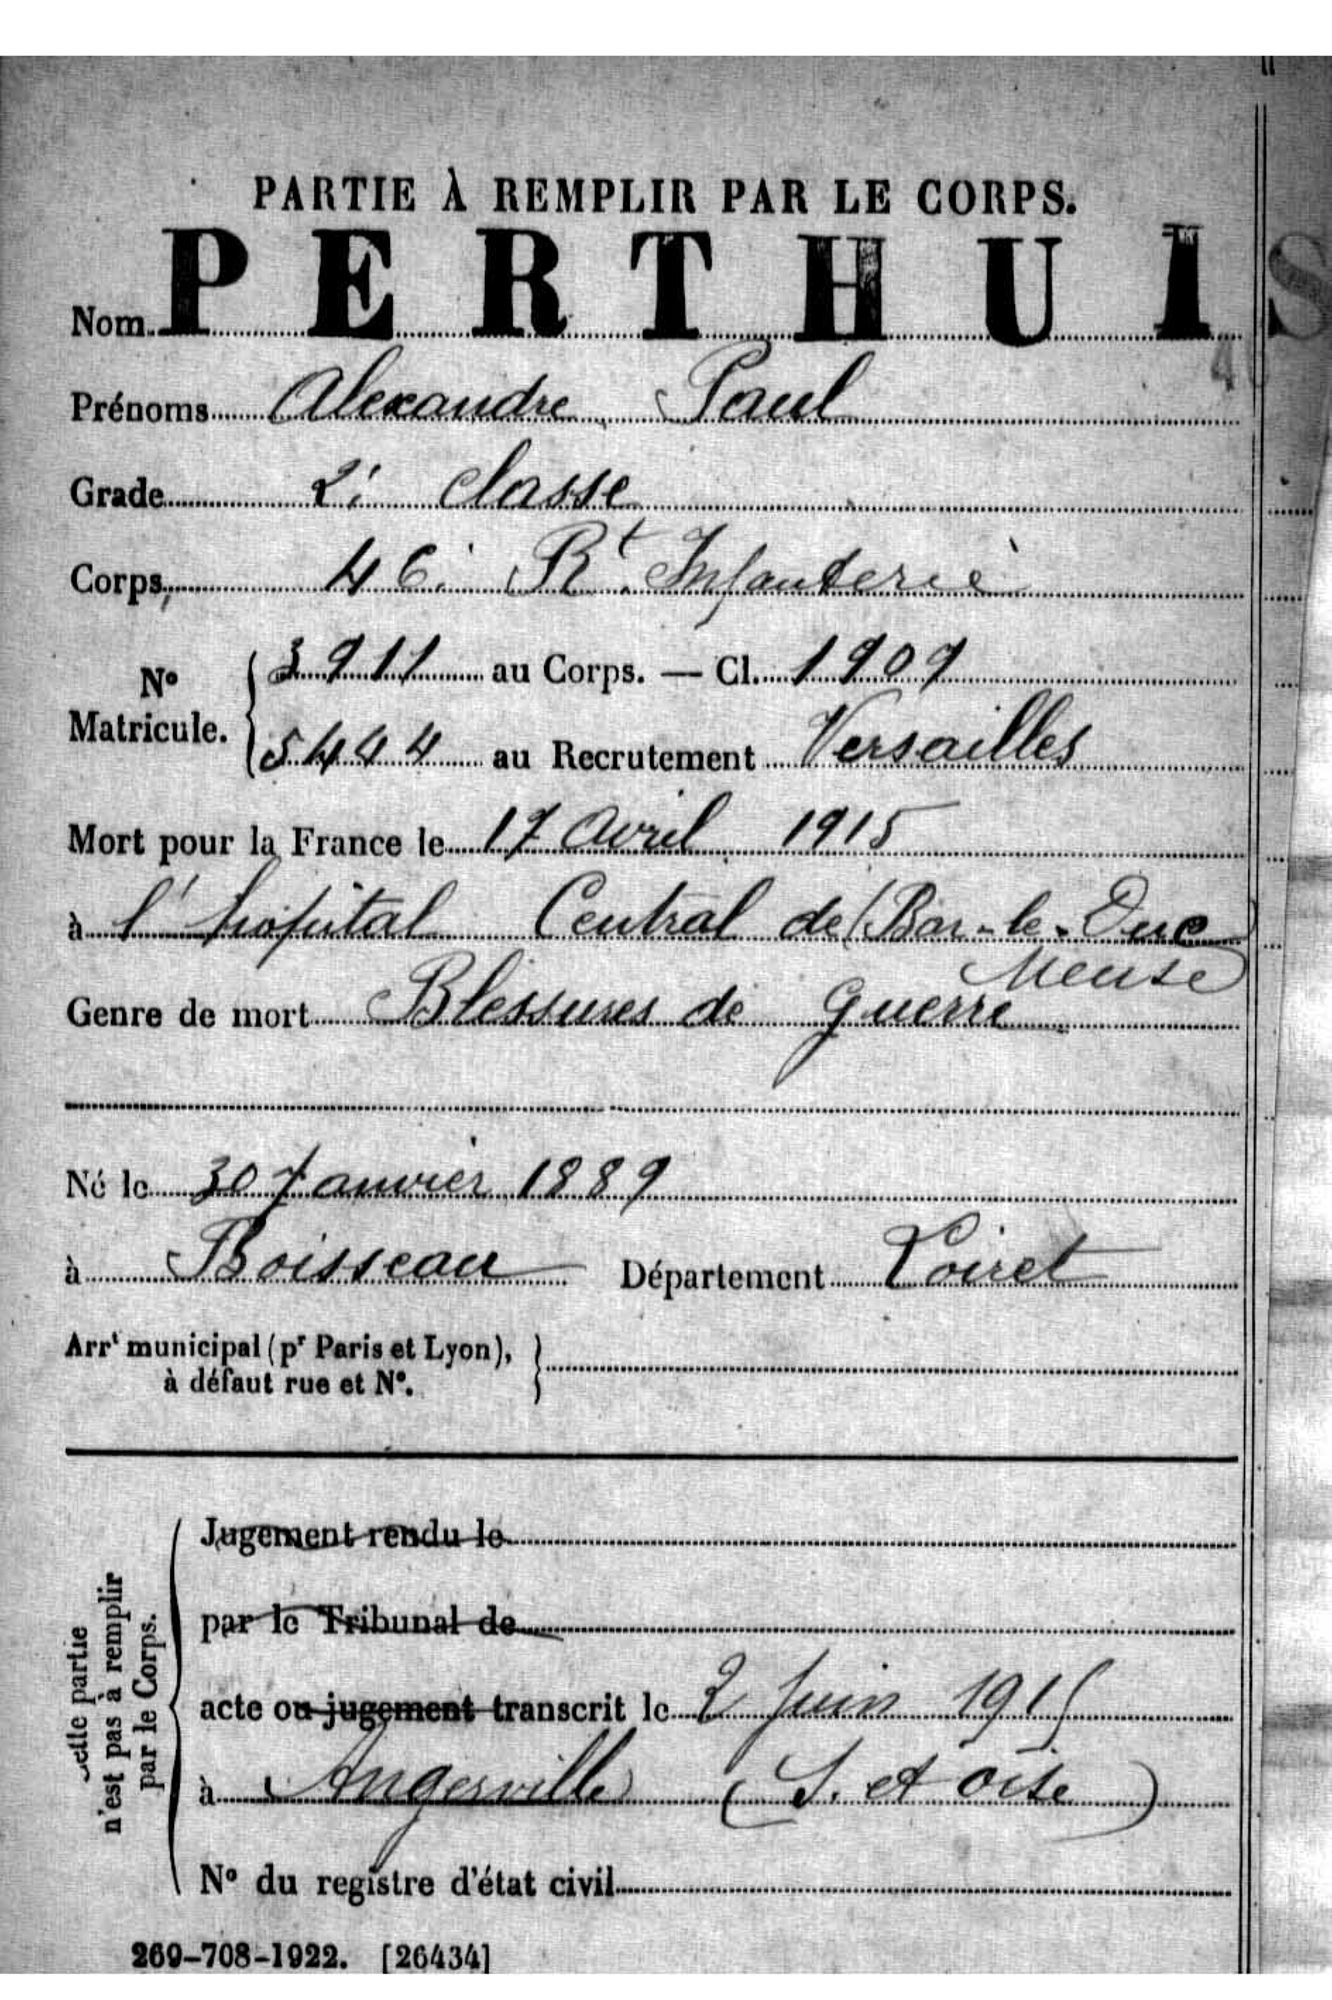 PARTIE À REMPLIR PAR LE CORPS.
Nom PERTHUIS
4
Prénoms Alexandre Paul
Grade 2e classe
Corps, 46e Rt Infanterie
No Matricule. 3911 au Corps. — Cl. 1909
5444 au Recrutement Versailles
Mort pour la France le 17 Avril 1915
à l'hôpital Central de (Bar-le-Duc
Meuse)
Genre de mort Blessures de guerre
Né le 30 Janvier 1889
à Boisseau Département Loiret
Arrt municipal (pr Paris et Lyon),
à défaut rue et No.
Cette partie
n'est pas à remplir
par le Corps.
Jugement rendu le
par le Tribunal de
acte ou jugement transcrit le 2 Juin 1915
à Angerville (S. et Oise)
No du registre d'état civil
269-708-1922. [26434]